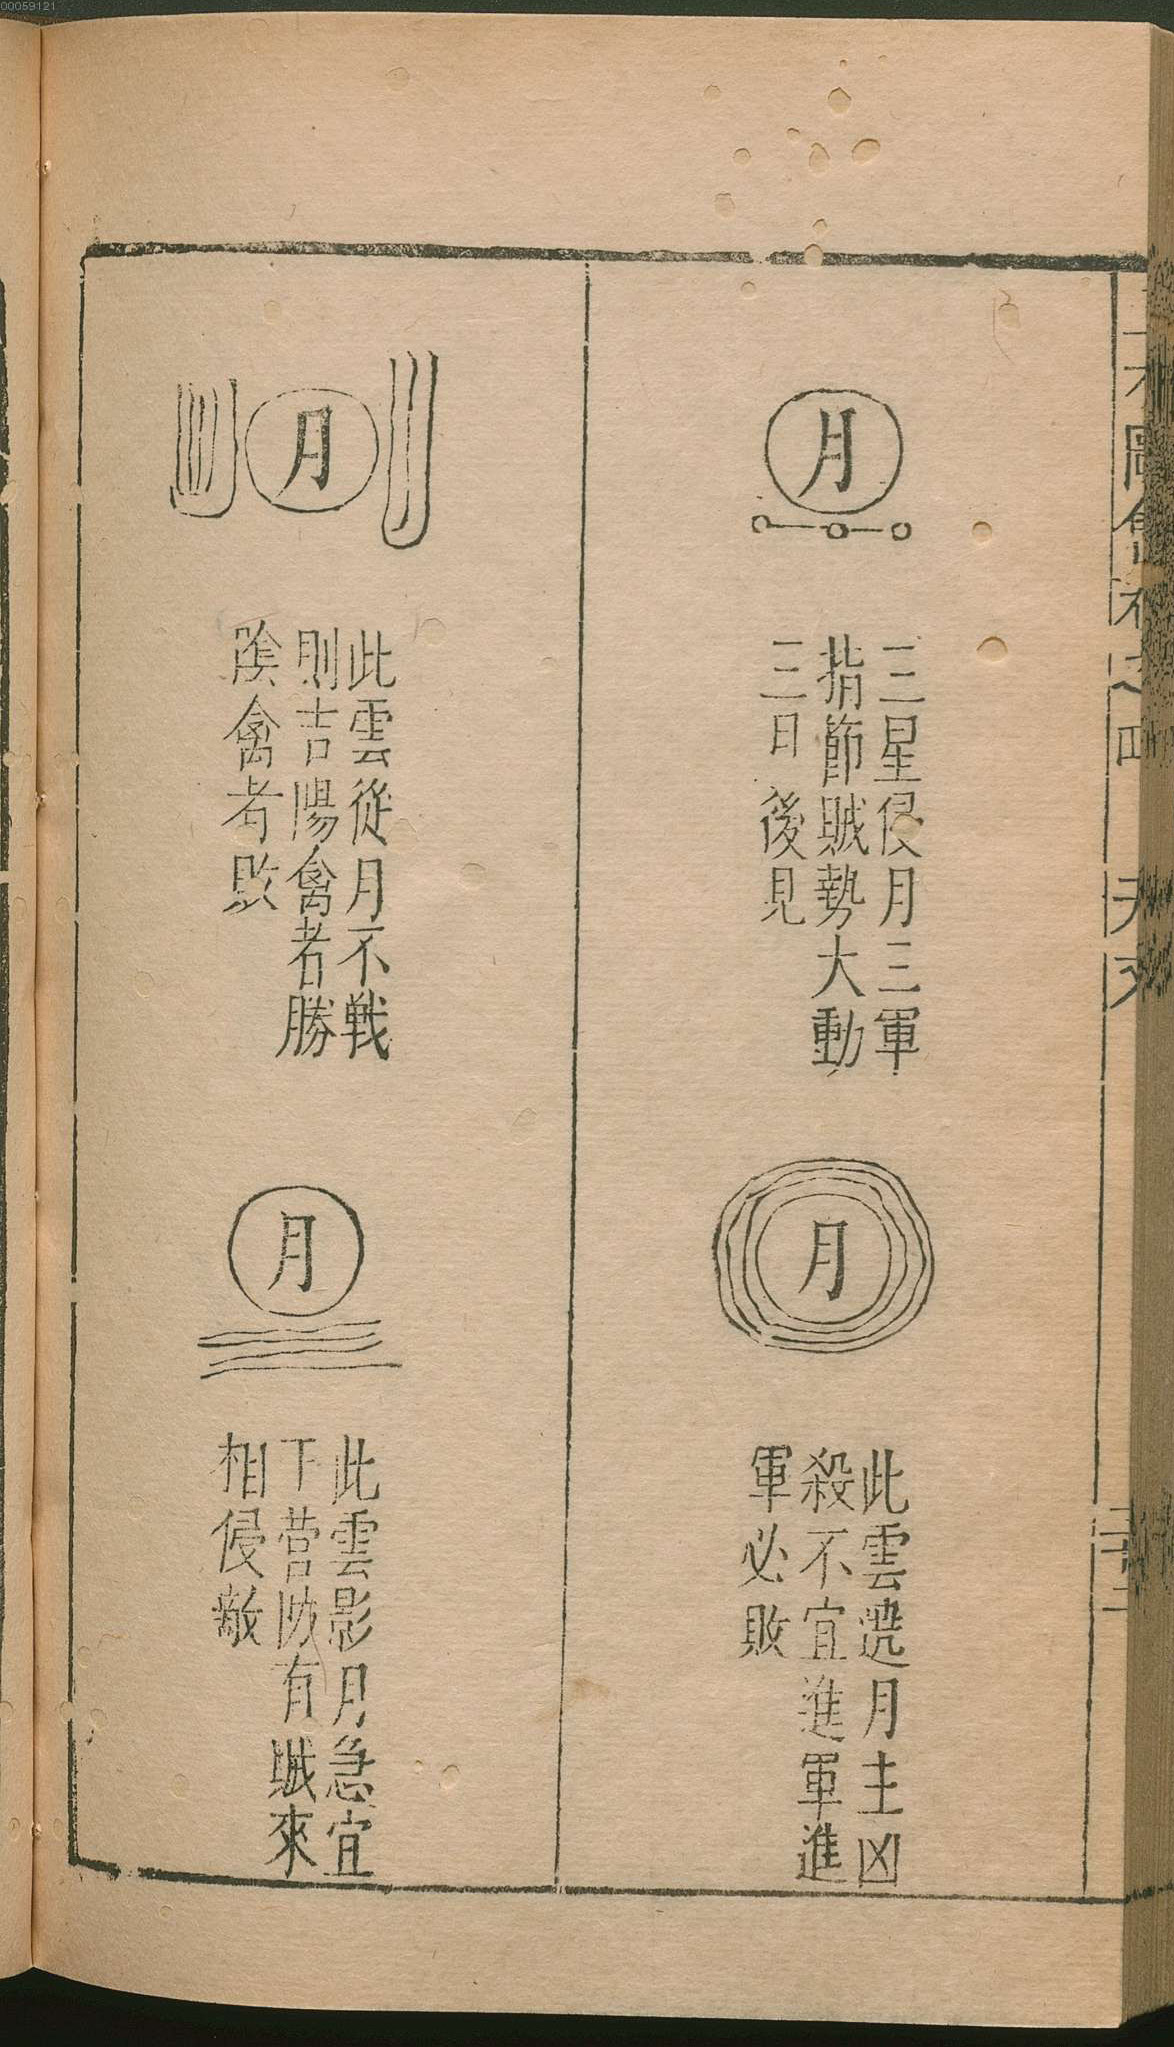 00059121
月
三星侵月三軍
指節賊勢大動
三日後見
月
此雲遶月主凶
殺不宜進軍進
軍必敗
月
此雲從月不戦
則吉陽禽者勝
陰禽者敗
月
此雲影月急宜
下营防有賊來
相侵敵
圖會
天文